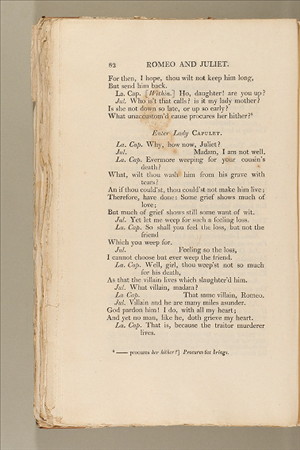 82 ROMEO AND JULIET.
For then, I hope, thou wilt not keep him long,
But send him back.
La. Cap. [Within.] Ho, daughter! are you up?
Jul. Who is't that calls? is it my lady mother?
Is she not down so late, or up so early?
What unaccustom'd cause procures her hither?*
Enter Lady CAPULET.
La. Cap. Why, how now, Juliet?
Jul. Madam, I am not well.
La. Cap. Evermore weeping for your cousin's
death?
What, wilt thou wash him from his grave with
tears?
An if thou could'st, thou could'st not make him live;
Therefore, have done: Some grief shows much of
love;
But much of grief shows still some want of wit.
Jul. Yet let me weep for such a feeling loss.
La. Cap. So shall you feel the loss, but not the
friend
Which you weep for.
Jul. Feeling so the loss,
I cannot choose but ever weep the friend.
La. Cap. Well, girl, thou weep'st not so much
for his death,
As that the villain lives which slaughter'd him.
Jul. What villain, madam?
La Cap. That same villain, Romeo.
Jul. Villain and he are many miles asunder.
God pardon him! I do, with all my heart;
And yet no man, like he, doth grieve my heart.
La. Cap. That is, because the traitor murderer
lives.
* —— procures her hither?] Procures for brings.